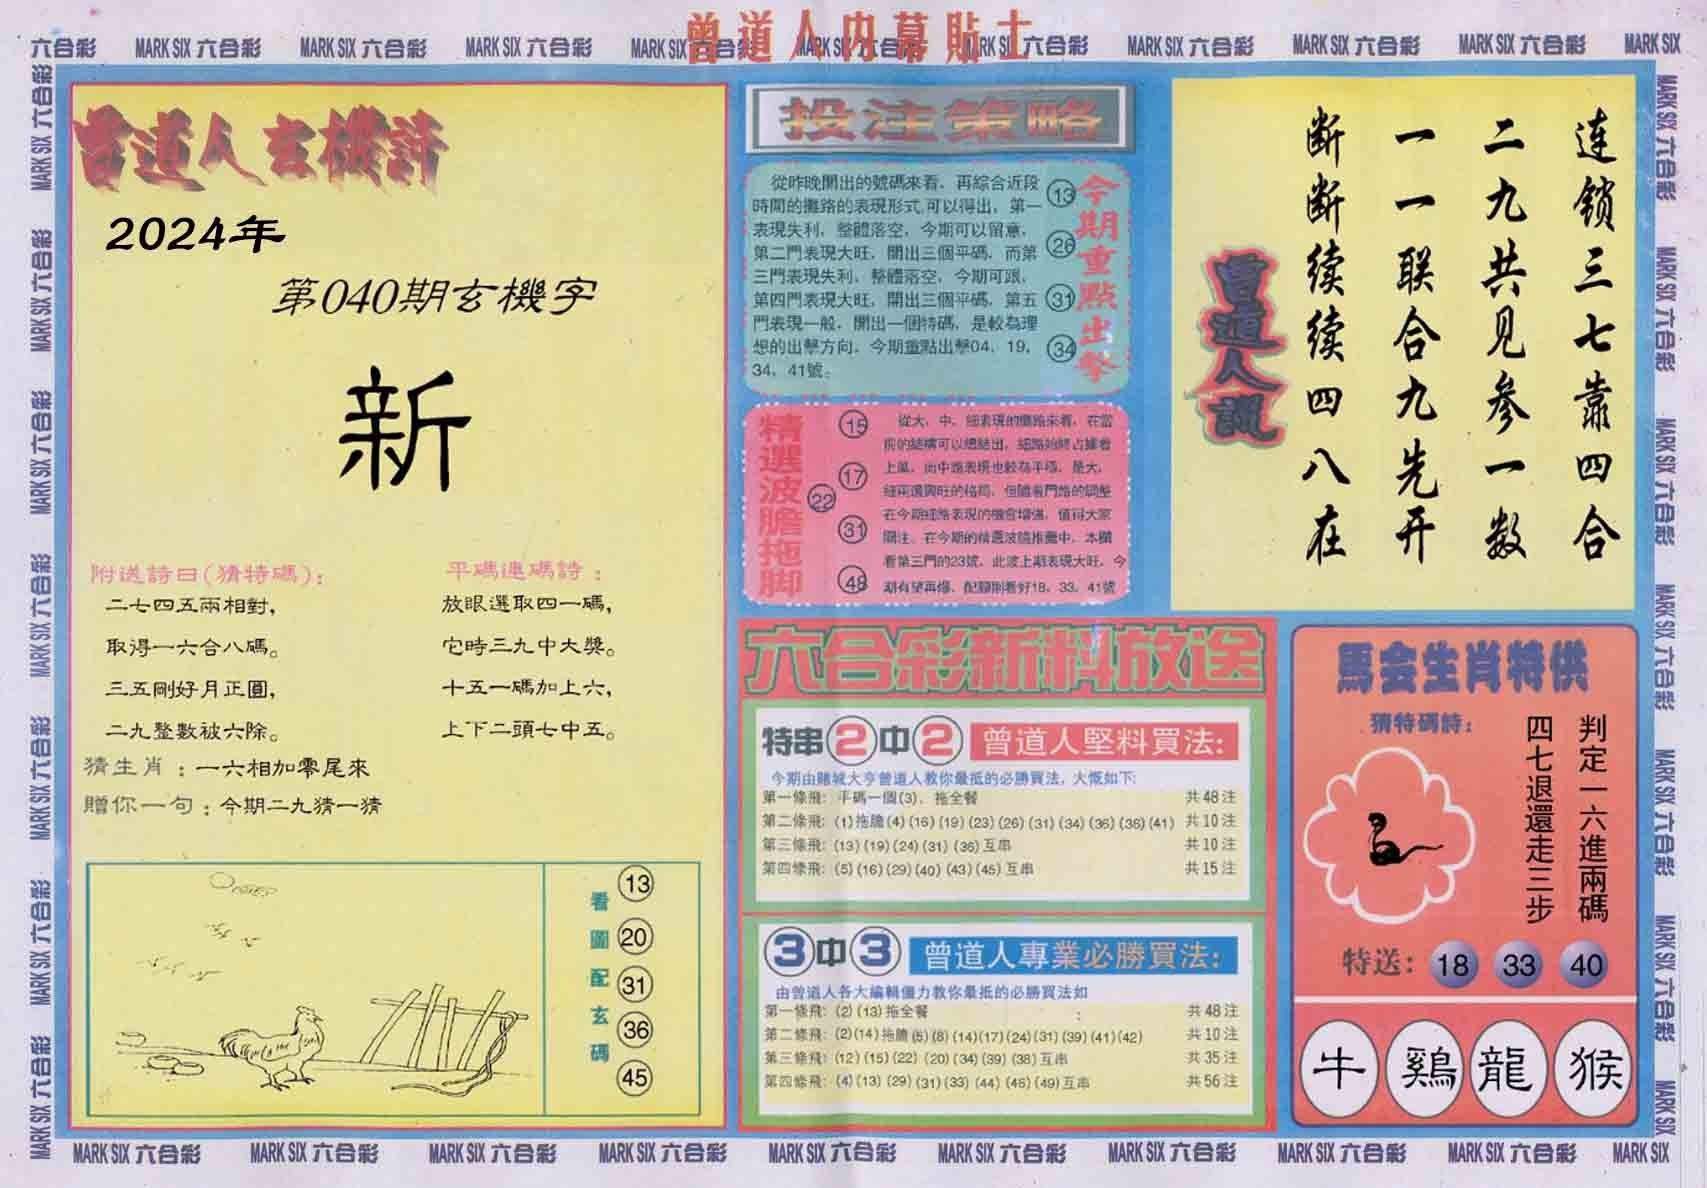 曾道人内幕貼士
六合彩 MARK SIX 六合彩 MARK SIX 六合彩 MARK SIX 六合彩 MARK SIX 六合彩 MARK SIX 六合彩 MARK SIX 六合彩 MARK SIX 六合彩 MARK SIX 六合彩 MARK SIX 六合彩 MARK SIX
曾道人玄機詩
2024年
第040期玄機字
新
附送詩曰(猜特碼):
二七四五兩相對,
取得一六合八碼。
三五剛好月正圓,
二九整數被六除。
平碼連碼詩:
放眼選取四一碼,
它時三九中大獎。
十五一碼加上六,
上下二頭七中五。
猜生肖:一六相加零尾來
贈你一句:今期二九猜一猜
看圖配玄碼
13
20
31
36
45
投注策略
從昨晚開出的號碼來看，再綜合近段
時間的攤路的表現形式,可以得出，第一
表現失利，整體落空，今期可以留意，
第二門表現大旺，開出三個平碼，而第
三門表現失利，整體落空，今期可跟，
第四門表現大旺，開出三個平碼，第五
門表現一般，開出一個特碼，是較為理
想的出擊方向，今期重點出擊04，19，
34，41號。
今期重點出擊
13
26
31
34
精選波膽拖脚
15
17
22
31
48
從大、中、細表現的攤路來看，在當
前的結構可以總結出，細路始終占據着
上風，而中路表現也較為平穩，是大、
細兩邊興旺的格局，但隨着門路的調整
在今期細路表現的機會增強，值得大家
關注。在今期的精選波膽推薦中，本欄
看第三門的23號，此波上期表現大旺，今
期有望再爆，配腳則看好18，33，41號
连锁三七靠四合
二九共见参一数
一一联合九先开
断断续续四八在
曾道人説
六合彩新料放送
特串2中2 曾道人堅料買法:
今期由賭城大亨曾道人教你最抵的必勝買法，大慨如下:
第一條飛: 平碼一個(3)，拖全餐 共48注
第二條飛: (1)拖膽(4)(16)(19)(23)(26)(31)(34)(36)(36)(41) 共10注
第三條飛: (13)(19)(24)(31)(36)互串 共10注
第四條飛: (5)(16)(29)(40)(43)(45)互串 共15注
3中3 曾道人專業必勝買法:
由曾道人各大編輯僵力教你最抵的必勝買法如
第一條飛: (2)(13)拖全餐 共48注
第二條飛: (2)(14)拖膽(5)(8)(14)(17)(24)(31)(39)(41)(42) 共10注
第三條飛: (12)(15)(22)(20)(34)(39)(38)互串 共35注
第四條飛: (4)(13)(29)(31)(33)(44)(46)(49)互串 共56注
馬会生肖特供
猜特碼詩:
判定一六進兩碼
四七退還走三步
特送: 18 33 40
牛 鷄 龍 猴
MARK SIX 六合彩 MARK SIX 六合彩 MARK SIX 六合彩 MARK SIX 六合彩 MARK SIX 六合彩 MARK SIX 六合彩 MARK SIX 六合彩 MARK SIX 六合彩 MARK SIX 六合彩 MARK SIX